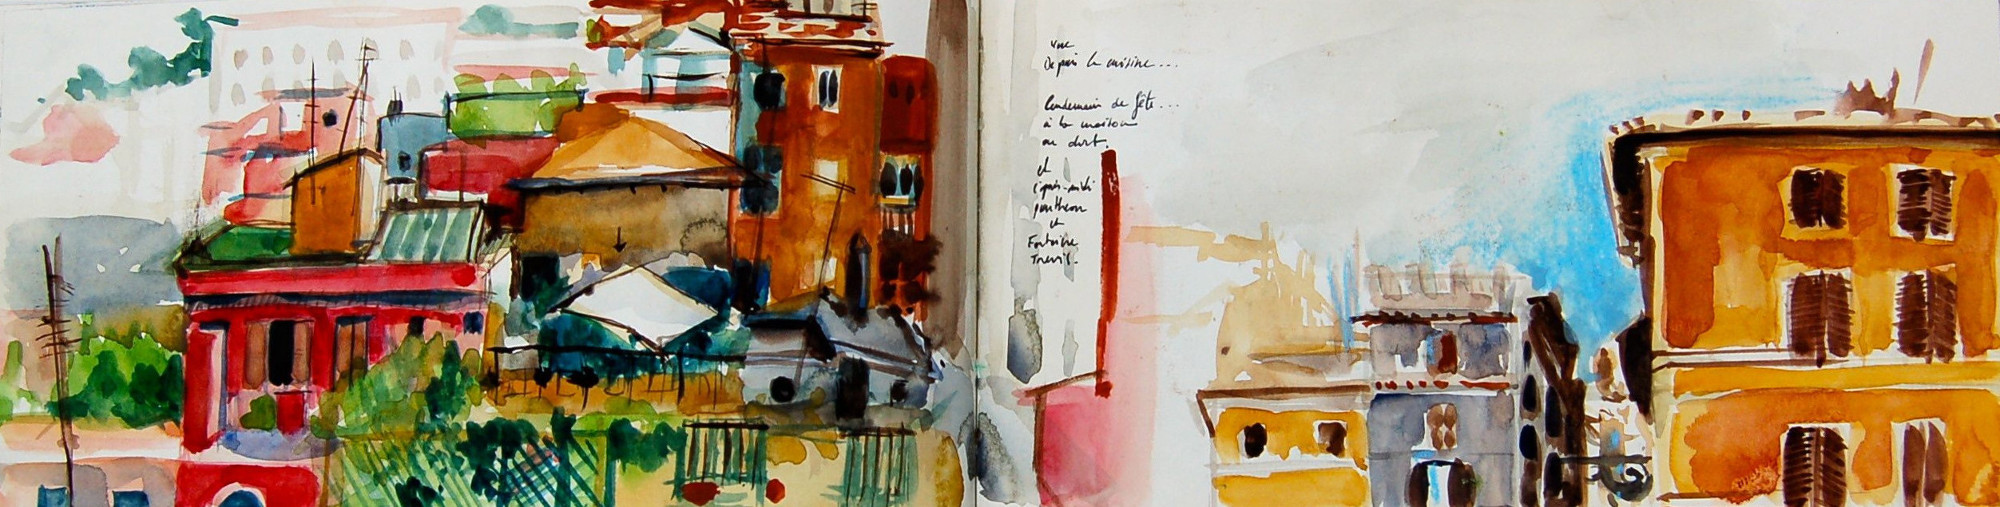 vue
Depuis la cuisine...
lendemain de fête...
à la maison
on dort.
et
l'après-midi
pantheon
et
Fontaine
Trevi.